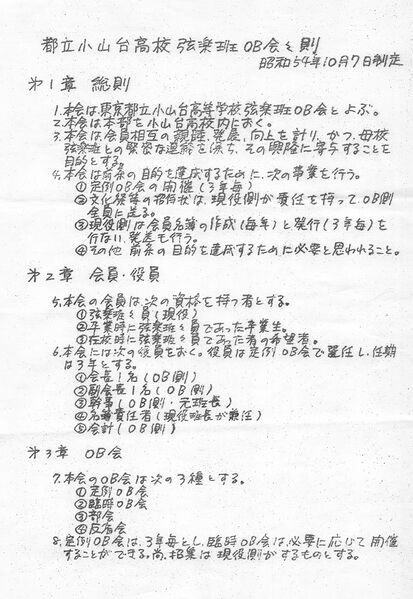 都立小山台高校 弦楽班 OB会々則
昭和54年10月7日制定
第1章 総則
1.本会は東京都立小山台高等学校弦楽班OB会とよぶ。
2.本会は本部を小山台高校内におく。
3.本会は会員相互の親睦、発展、向上を計り、かつ、母校
弦楽班との緊密な連絡を保ち、その興隆に寄与することを
目的とする。
4.本会は前条の目的を達成するために、次の事業を行う。
①定例OB会の開催(3年毎)
②文化祭等の招待状は、現役側が責任を持って、OB側
会員に送る。
③現役側は会員名簿の作成(毎年)と発行(3年毎)を
行ない、発送も行う。
④その他 前条の目的を達成するために必要と思われること。
第2章 会員・役員
5.本会の会員は次の資格を持つ者とする。
①弦楽班々員(現役)
②卒業時に弦楽班々員であった卒業生。
③在校時に弦楽班々員であった者の希望者。
6.本会には次の役員をおく。役員は定例OB会で選任し、任期
は3年とする。
①会長1名(OB側)
②副会長1名(OB側)
③幹事(OB側・元班長)
④名簿責任者(現役班長が兼任)
⑤会計(OB側)
第3章 OB会
7.本会のOB会は次の3種とする。
①定例OB会
②臨時OB会
③部会
④反省会
8.定例OB会は、3年毎とし、臨時OB会は、必要に応じて開催
することができる。尚、招集は現役側がするものとする。